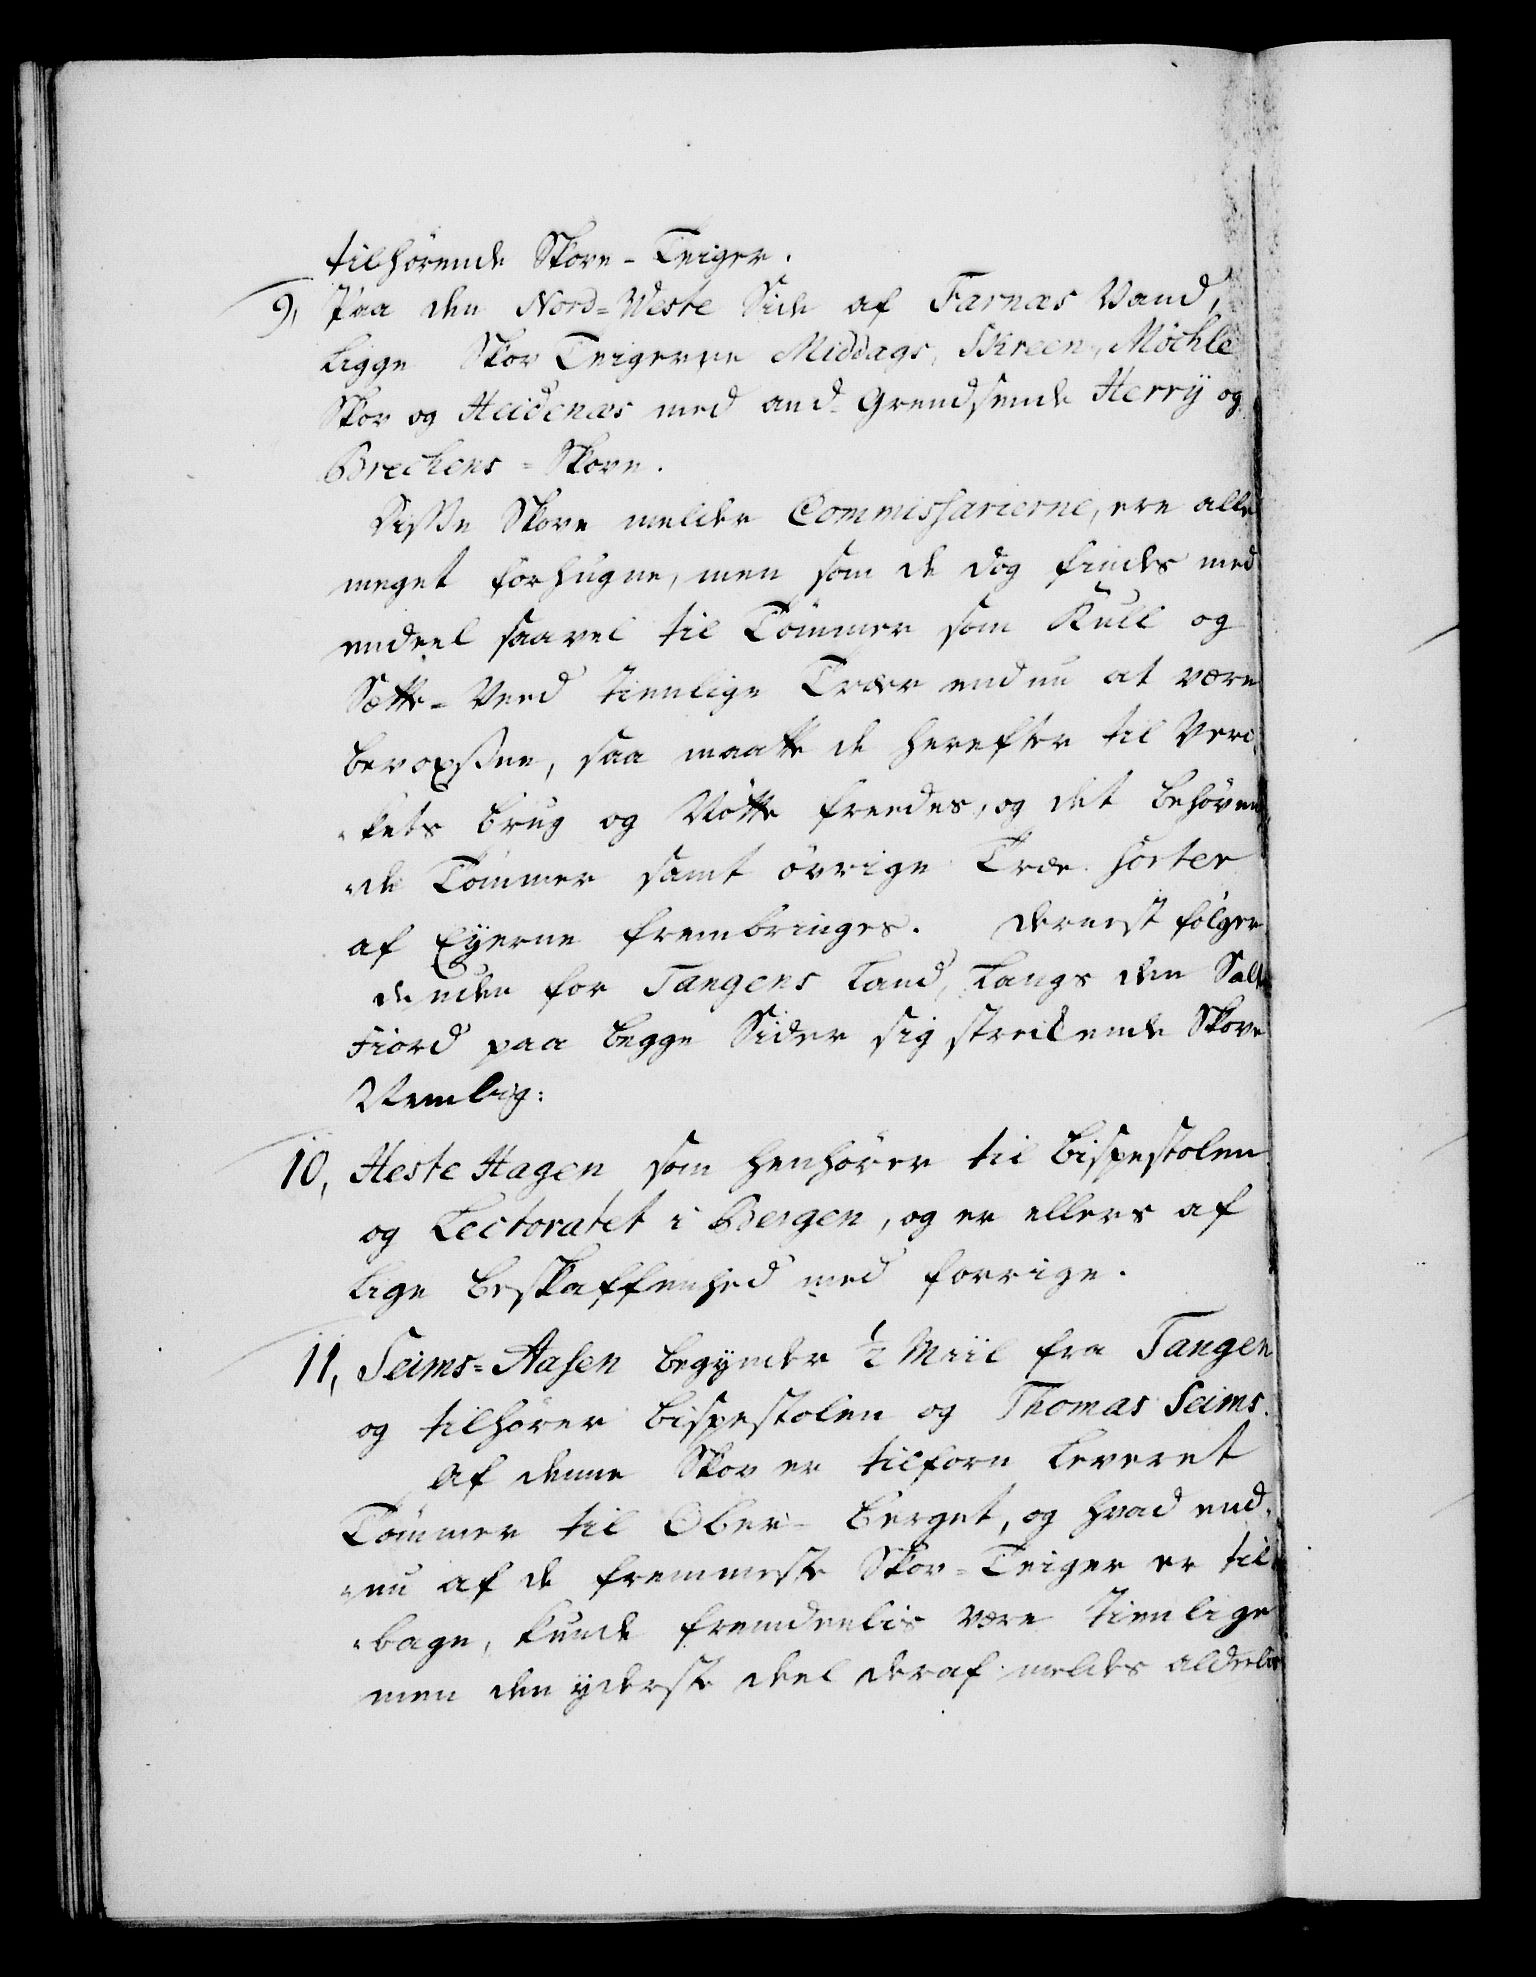 tilhörende Skove-Teiger.
9, Paa den Nord=Weste Side af Farnæs Vand,
ligge Skov Teigerne Middags, Skreen, Möchle
Skov og Heidenæs med and-Grendsende Herrÿ og
Brechens=Skove.
Disse Skove melder Commissarierne, ere alle
meget forhugne, men som de dog findes med
endeel saavel til Tömmer som Kull og
Sætte-Veed tienlige Træer endnu at være
bevoxsne, saa maatte de herefter til Ver-
kets brug og Nötte freedes, og det behöven-
de Tömmer samt övrige Træe Sorter
af Eÿerne frembringes. Dernest fölger
de uden for Tangens Land, Langs den Salt
Fiord paa begge Sider sig streckende Skove
Nemlig:
10, Heste Hagen som henhörer til Bispestolen
og Lectoratet i Bergen, og er ellers af
lige beskaffenhed med forrige.
11, Seims=Aasen begynder ½ Miil fra Tangen
og tilhörer bispestolen og Thomas Seims.
Af denne Skov er tilforn Leveret
Tömmer til Ober-berget, og hvad end-
nu af de fremmeste Skov=Teiger er til-
bage, kunde fremdeelis være tienlige
men den yderste deel deraf meldes aldeelis